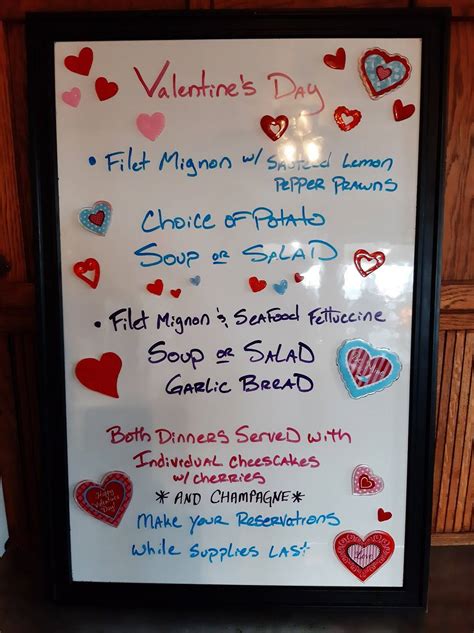 Valentine's Day
• Filet Mignon w/ Sauteed Lemon
Pepper Prawns
Choice of Potato
Soup or Salad
• Filet Mignon & Seafood Fettuccine
Soup or Salad
Garlic Bread
Both Dinners Served with
Individual Cheescakes
w/ Cherries
*AND CHAMPAGNE*
Make your Reservations
while Supplies Last
Happy
Valentine's
Day!
Love